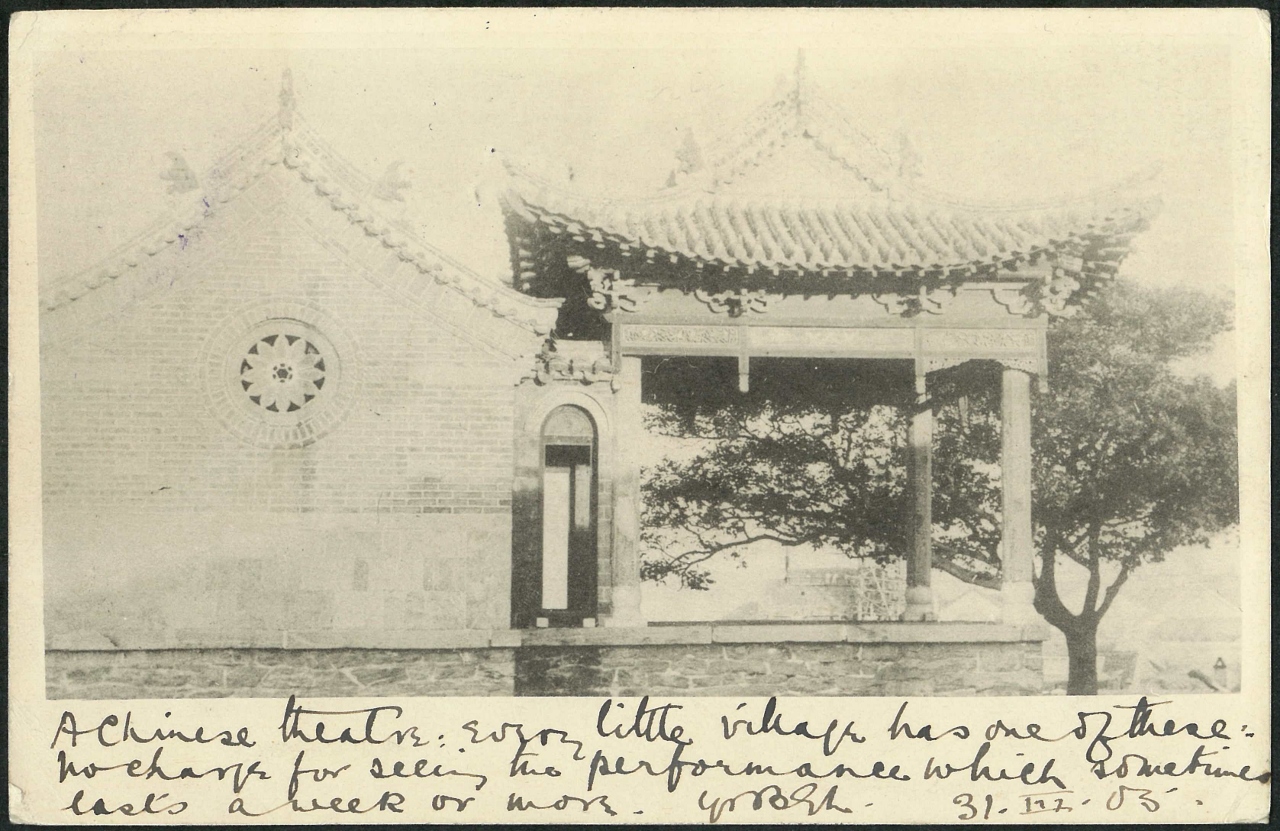 A Chinese theatre: every little village has one of these:
no charge for seeing the performance which sometimes
lasts a week or more. 31. III. 05.